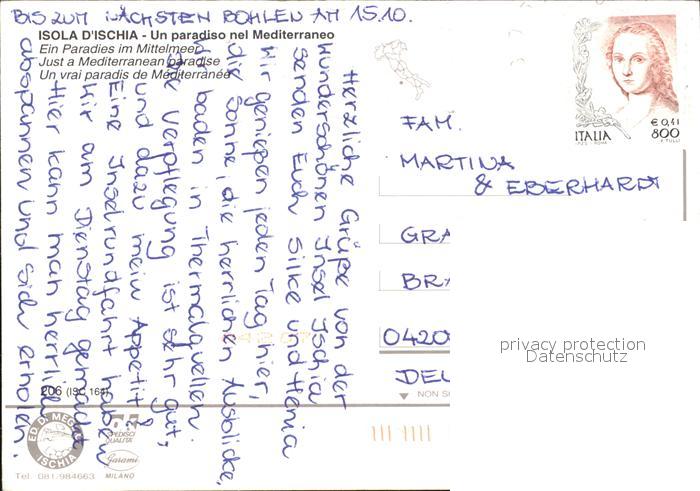 BIS ZUM NÄCHSTEN BOHLEN AM 15.10.
ISOLA D'ISCHIA - Un paradiso nel Mediterraneo
Ein Paradies im Mittelmeer
Just a Mediterranean paradise
Un vrai paradis de Méditerranée
Herzliche Grüße von der
wunderschönen Insel Ischia
senden Euch Silke und Henia
Wir genießen jeden Tag hier,
die Sonne, die herrlichen Ausblicke,
baden in Thermalquellen.
Die Verpflegung ist sehr gut,
und dazu mein Appetit!
Eine Inselrundfahrt haben
wir am Dienstag gemacht
Hier kann man herrlich
abspannen und sich erholen.
€ 0,41
800
ITALIA
FAM.
MARTINA
& EBERHARDT
GRA
BRA
0420
DEL
privacy protection
Datenschutz
206 (ISC 164)
NON S
ED. DI MEGLIO
ISCHIA
Tel. 081/984663
Garami
MILANO